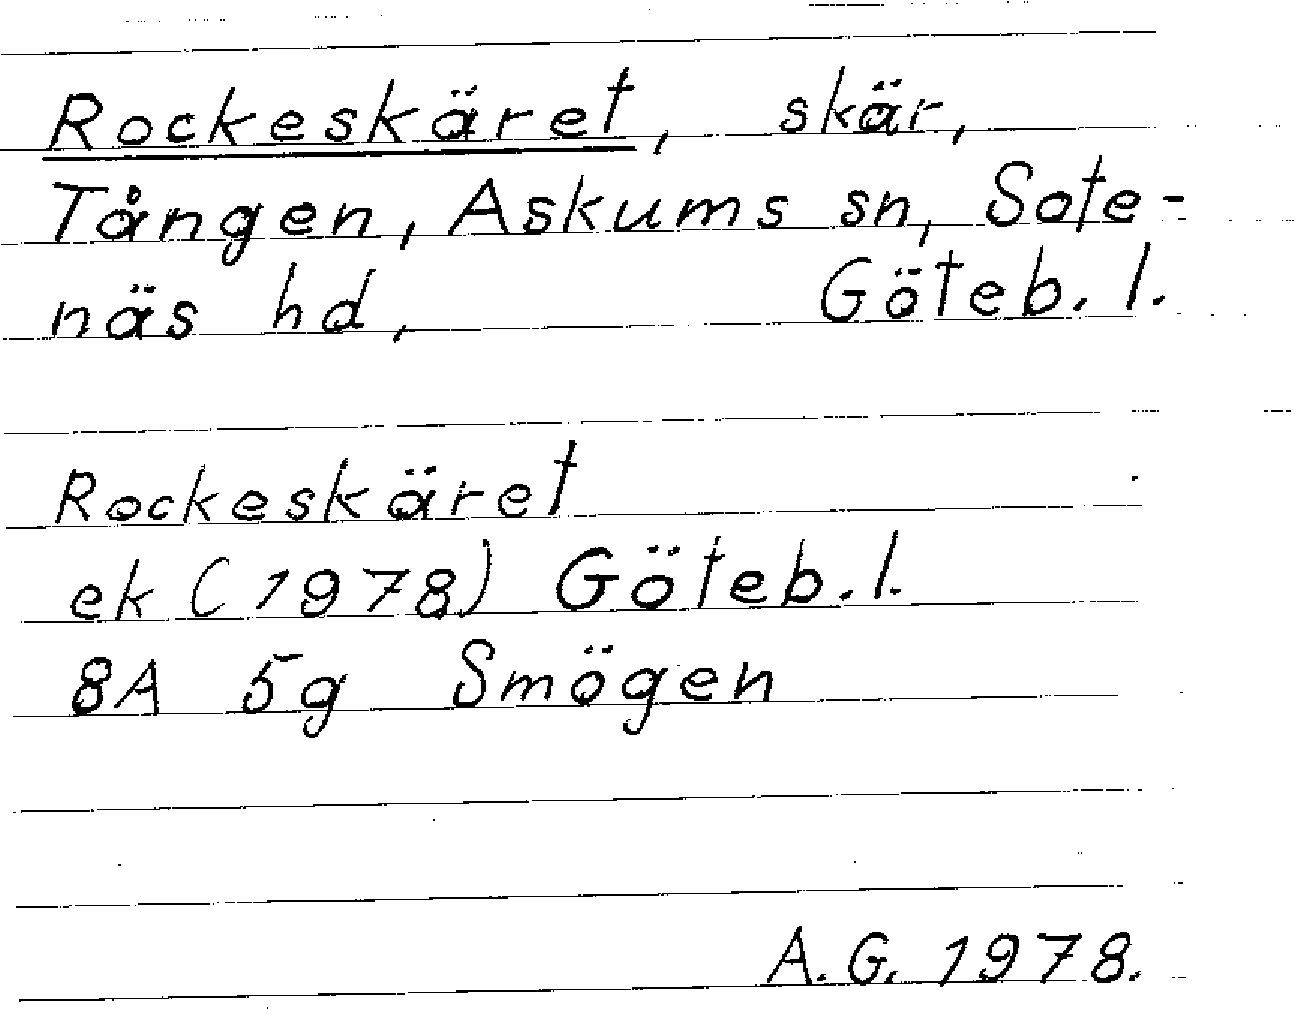 Rockeskäret, skär,
Tången, Askums sn, Sote-
näs hd, Göteb. l.
Rockeskäret
ek (1978) Göteb. l.
8A 5g Smögen
A.G. 1978.